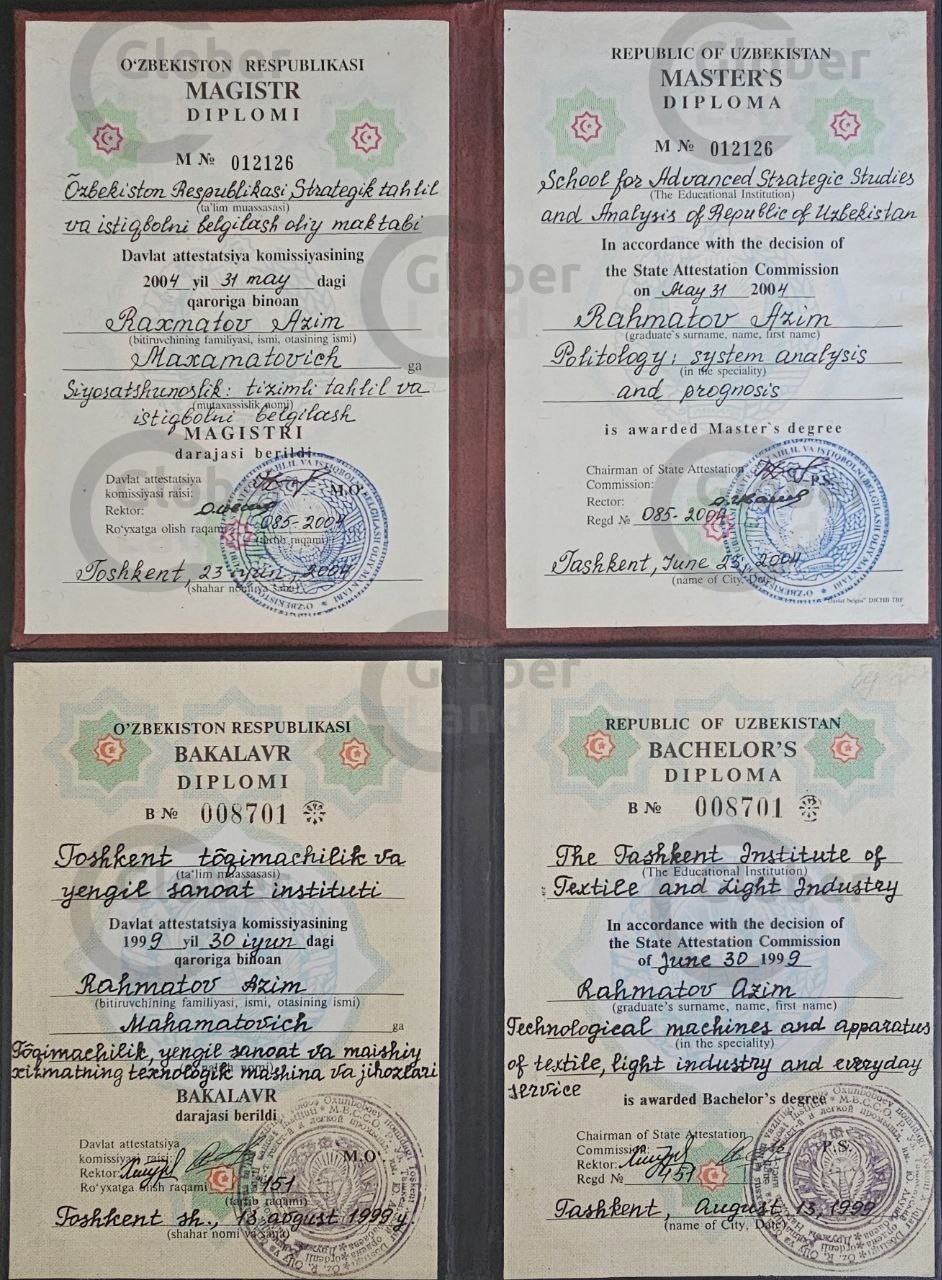 O‘ZBEKISTON RESPUBLIKASI
MAGISTR
DIPLOMI
M № 012126
Õzbekiston Respublikasi Strategik tahlil
(ta'lim muassasasi)
va istiqbolni belgilash oliy maktabi
Davlat attestatsiya komissiyasining
2004 yil 31 may dagi
qaroriga binoan
Raxmatov Azim
(bitiruvchining familiyasi, ismi, otasining ismi)
Maxamatovich ga
Siyosatshunoslik: tizimli tahlil va
(mutaxassislik nomi)
istiqbolni belgilash
MAGISTRI
darajasi berildi
Davlat attestatsiya
komissiyasi raisi:
M.O‘
Rektor:
Ro‘yxatga olish raqami 085-2004
(tartib raqami)
Toshkent, 23 iyun, 2004
(shahar nomi va sana)
REPUBLIC OF UZBEKISTAN
MASTER`S
DIPLOMA
M № 012126
School for Advanced Strategic Studies
(The Educational Institution)
and Analysis of Republic of Uzbekistan
In accordance with the decision of
the State Attestation Commission
on May 31 2004
Rahmatov Azim
(graduate's surname, name, first name)
Politology: system analysis
(in the speciality)
and prognosis
is awarded Master`s degree
Chairman of State Attestation
Commission:
P.S.
Rector:
Regd № 085-2004
Tashkent, June 23, 2004
(name of City, Date)
"Davlat belgisi" DICHB TBF
O‘ZBEKISTON RESPUBLIKASI
BAKALAVR
DIPLOMI
B № 008701
Toshkent tõqimachilik va
(ta'lim muassasasi)
yengil sanoat instituti
Davlat attestatsiya komissiyasining
1999 yil 30 iyun dagi
qaroriga binoan
Rahmatov Azim
(bitiruvchining familiyasi, ismi, otasining ismi)
Mahamatovich ga
Tõqimachilik, yengil sanoat va maishiy
xizmatning texnologik mashina va jihozlari
BAKALAVR
darajasi berildi
Davlat attestatsiya
komissiyasi raisi:
M.O‘
Rektor:
Ro‘yxatga olish raqami 451
(tartib raqami)
Toshkent sh., 13 avgust 1999 y.
(shahar nomi va sana)
REPUBLIC OF UZBEKISTAN
BACHELOR'S
DIPLOMA
B № 008701
The Tashkent Institute of
(The Educational Institution)
Textile and Light Industry
In accordance with the decision of
the State Attestation Commission
of June 30 1999
Rahmatov Azim
(graduate's surname, name, first name)
Technological machines and apparatus
(in the speciality)
of textile, light industry and everyday
service
is awarded Bachelor's degree
Chairman of State Attestation
Commission:
P.S.
Rektor:
Regd № 451
Tashkent, August 13, 1999
(name of City, Date)
Glober Land